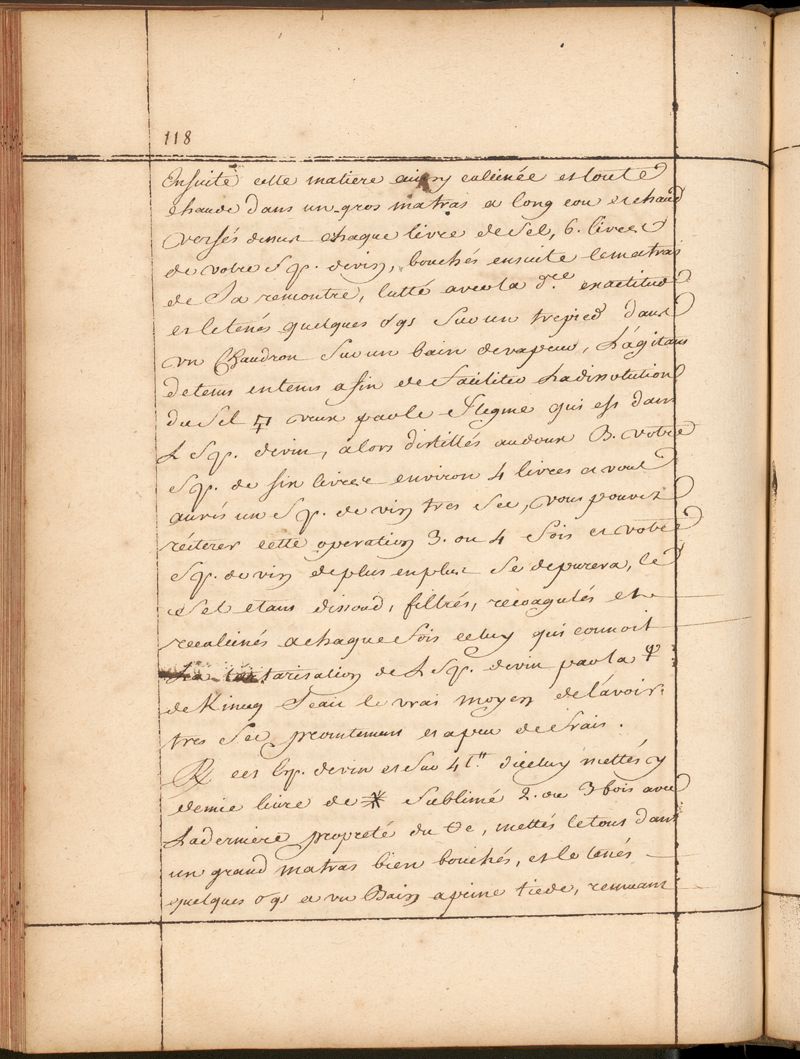 118
Ensuite cette matiere ainsy calcinée et toute
chaude dans un gros matras a long cou et chaud
versés dessus chaque livre de sel, 6. livres
de votre Sp. de vin, bouchés ensuite le matras
de Sa remontre, lutté avec la d.re exactitude
et le tenés quelques Jours Sur un trepied dans
un Chaudron Sur un bain de vapeur, L'agitant
de tems en tems afin de faciliter La dissolution
du Sel par le flegme qui est dans
L Sp. de vin, alors distillés au doux B. votre
Sp. de six livres environ 4 livres et vous
aurés un Sp. de vin tres Sec, vous pouvez
réiterer cette operation 3. ou 4 fois et votre
Sp. de vin de plus en plus Se depurera, le
Sel etant dissoud, filtrés, recoagulés et
recalcinés a chaque fois celuy qui connoit
La tartarisation de L Sp. de vin par la
de Kineg Scait le vrai moyen de l'avoir
tres Sec promtement et a peu de frais.
R cet Sp. de vin et Sur 4 l. diceluy mettés y
demie livre de ✶ Sublimé 2. ou 3 fois avec
La derniere propreté du , mettés le tout dans
un grand matras bien bouchés, et le tenés
quelques Jours a un Bain a peine tiede, remuant